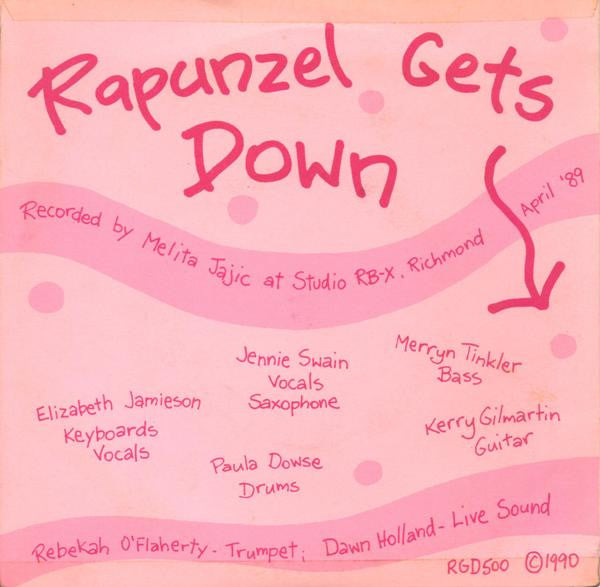 Rapunzel Gets
Down
Recorded by Melita Jajic at Studio RB-X, Richmond April '89
Jennie Swain
Vocals
Saxophone
Merryn Tinkler
Bass
Elizabeth Jamieson
Keyboards
Vocals
Kerry Gilmartin
Guitar
Paula Dowse
Drums
Rebekah O'Flaherty - Trumpet; Dawn Holland - Live Sound
RGD500 ©1990